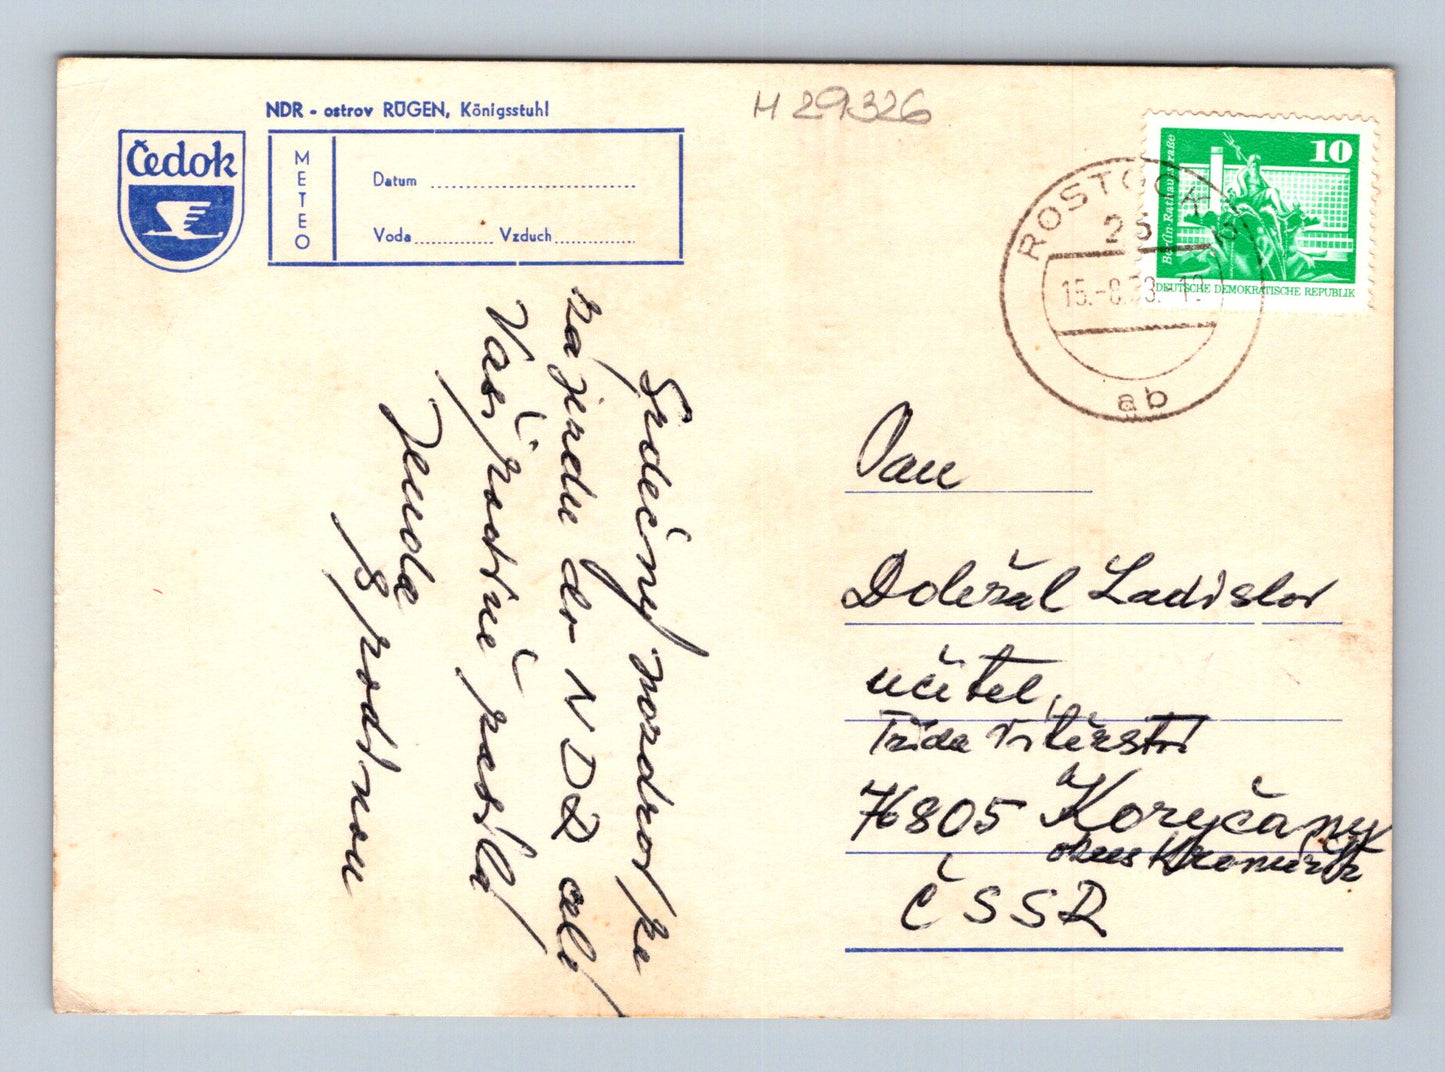 NDR - ostrov RÜGEN, Königsstuhl
Čedok
METEO
Datum
Voda Vzduch
H 29326
10
Berlin-Rathausstraße
DEUTSCHE DEMOKRATISCHE REPUBLIK
ROSTOCK
25
15.-8.
ab
Srdečný pozdrav ze
zájezdu do NDR celé
Vaší rodině zasílá
s rodinou
Pan
Doležal Ladislav
učitel,
Třída Vítězství
76805 Koryčany
okres Kroměříž
ČSSR